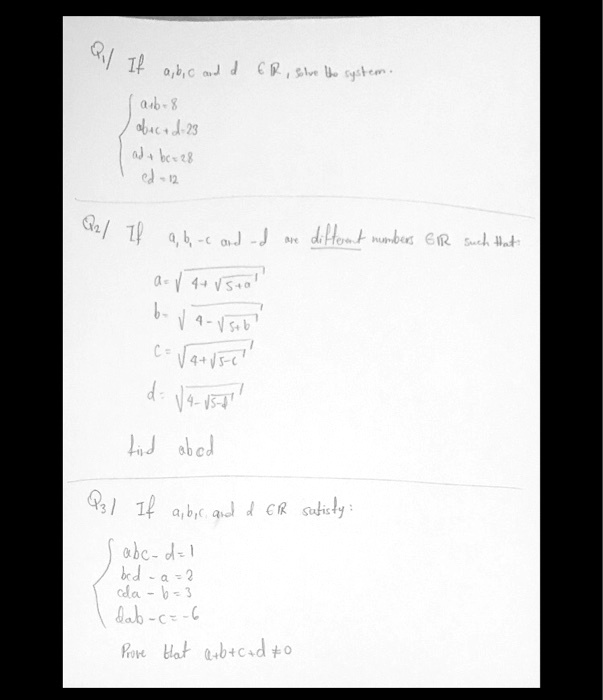 Q1/ If a,b,c and d ∈ R, solve the system.
a+b=8
ab+c+d=23
ad+bc=28
cd=12
Q2/ If a, b, -c and -d are different numbers ∈ R such that:
a=√(4+√(5+a))
b=√(4-√(5+b))
c=√(4+√(5-c))
d=√(4-√(5-d))
find abcd
Q3/ If a,b,c and d ∈ R satisfy:
abc-d=1
bcd-a=2
cda-b=3
dab-c=-6
Prove that a+b+c+d≠0